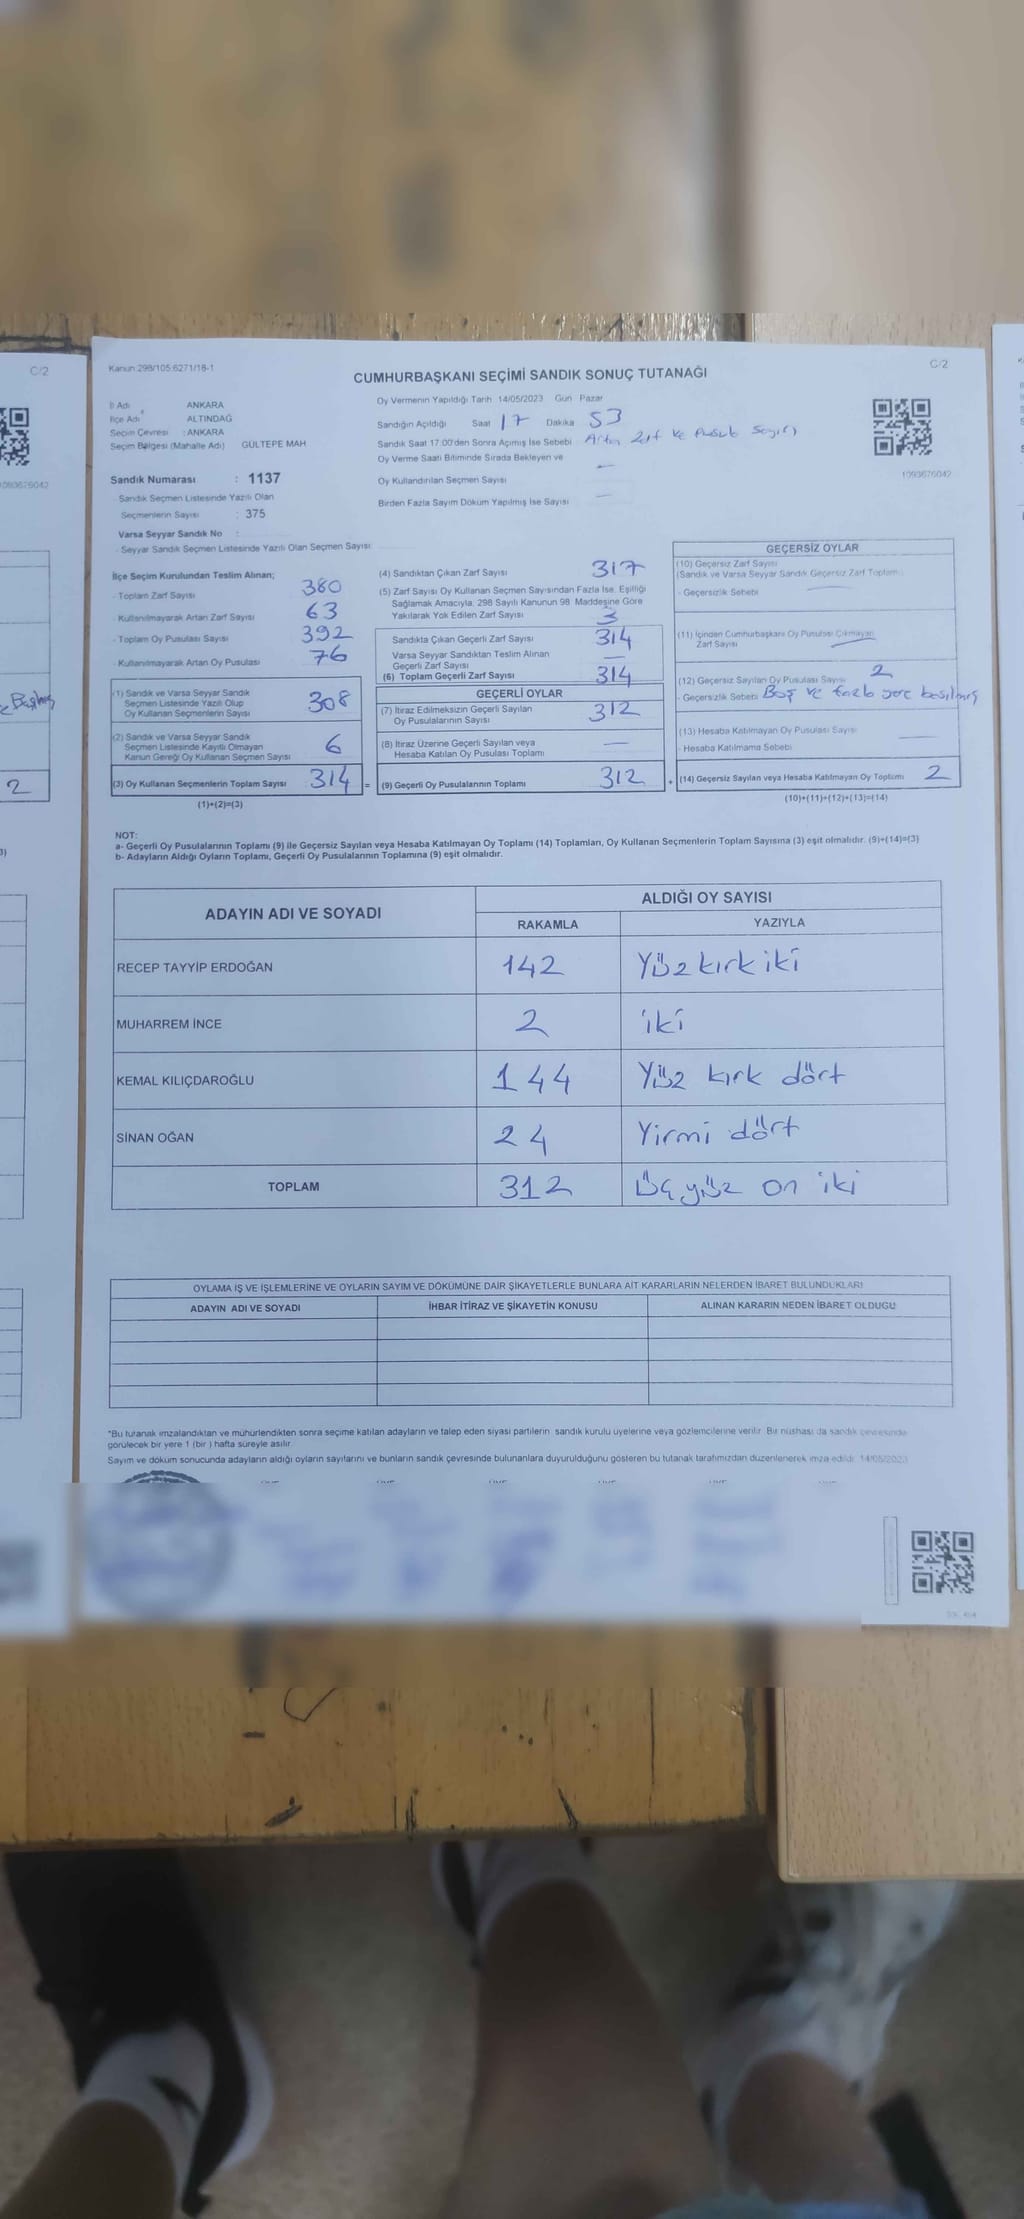 C/2
Kanun:298/105:6271/18-1
C/2
CUMHURBAŞKANI SEÇİMİ SANDIK SONUÇ TUTANAĞI
İl Adı ANKARA
İlçe Adı ALTINDAĞ
Seçim Çevresi : ANKARA
Seçim Bölgesi (Mahalle Adı) GÜLTEPE MAH
Oy Vermenin Yapıldığı Tarih 14/05/2023 Gün Pazar
Sandığın Açıldığı Saat 17 Dakika 53
Sandık Saat 17.00'den Sonra Açımış İse Sebebi Artan Zarf ve Pusula Sayımı
Oy Verme Saati Bitiminde Sırada Bekleyen ve
Oy Kullandırılan Seçmen Sayısı —
Birden Fazla Sayım Döküm Yapılmış İse Sayısı —
1093676042
1093676042
Sandık Numarası : 1137
- Sandık Seçmen Listesinde Yazılı Olan
Seçmenlerin Sayısı : 375
Varsa Seyyar Sandık No :
- Seyyar Sandık Seçmen Listesinde Yazılı Olan Seçmen Sayısı
İlçe Seçim Kurulundan Teslim Alınan;
- Toplam Zarf Sayısı 380
- Kullanılmayarak Artan Zarf Sayısı 63
- Toplam Oy Pusulası Sayısı 392
- Kullanılmayarak Artan Oy Pusulası 76
(1) Sandık ve Varsa Seyyar Sandık
Seçmen Listesinde Yazılı Olup
Oy Kullanan Seçmenlerin Sayısı 308
(2) Sandık ve Varsa Seyyar Sandık
Seçmen Listesinde Kayıtlı Olmayan
Kanun Gereği Oy Kullanan Seçmen Sayısı 6
(3) Oy Kullanan Seçmenlerin Toplam Sayısı 314 =
(1)+(2)=(3)
(4) Sandıktan Çıkan Zarf Sayısı 317
(5) Zarf Sayısı Oy Kullanan Seçmen Sayısından Fazla İse, Eşitliği
Sağlamak Amacıyla, 298 Sayılı Kanunun 98. Maddesine Göre
Yakılarak Yok Edilen Zarf Sayısı 3
Sandıkta Çıkan Geçerli Zarf Sayısı 314
Varsa Seyyar Sandıktan Teslim Alınan
Geçerli Zarf Sayısı —
(6) Toplam Geçerli Zarf Sayısı 314
GEÇERLİ OYLAR
(7) İtiraz Edilmeksizin Geçerli Sayılan
Oy Pusulalarının Sayısı 312
(8) İtiraz Üzerine Geçerli Sayılan veya
Hesaba Katılan Oy Pusulası Toplamı —
(9) Geçerli Oy Pusulalarının Toplamı 312 +
GEÇERSİZ OYLAR
(10) Geçersiz Zarf Sayısı
(Sandık ve Varsa Seyyar Sandık Geçersiz Zarf Toplamı)
- Geçersizlik Sebebi —
(11) İçinden Cumhurbaşkanı Oy Pusulası Çıkmayan
Zarf Sayısı —
(12) Geçersiz Sayılan Oy Pusulası Sayısı 2
- Geçersizlik Sebebi Boş ve fazla yere basılmış
(13) Hesaba Katılmayan Oy Pusulası Sayısı —
- Hesaba Katılmama Sebebi
(14) Geçersiz Sayılan veya Hesaba Katılmayan Oy Toplamı 2
(10)+(11)+(12)+(13)=(14)
2
NOT:
a- Geçerli Oy Pusulalarının Toplamı (9) ile Geçersiz Sayılan veya Hesaba Katılmayan Oy Toplamı (14) Toplamları, Oy Kullanan Seçmenlerin Toplam Sayısına (3) eşit olmalıdır. (9)+(14)=(3)
b- Adayların Aldığı Oyların Toplamı, Geçerli Oy Pusulalarının Toplamına (9) eşit olmalıdır.
ADAYIN ADI VE SOYADI
ALDIĞI OY SAYISI
RAKAMLA YAZIYLA
RECEP TAYYİP ERDOĞAN 142 Yüz kırk iki
MUHARREM İNCE 2 iki
KEMAL KILIÇDAROĞLU 144 Yüz kırk dört
SİNAN OĞAN 24 Yirmi dört
TOPLAM 312 Üçyüz on iki
OYLAMA İŞ VE İŞLEMLERİNE VE OYLARIN SAYIM VE DÖKÜMÜNE DAİR ŞİKAYETLERLE BUNLARA AİT KARARLARIN NELERDEN İBARET BULUNDUKLARI
ADAYIN ADI VE SOYADI İHBAR İTİRAZ VE ŞİKAYETİN KONUSU ALINAN KARARIN NEDEN İBARET OLDUGU
*Bu tutanak imzalandıktan ve mühürlendikten sonra seçime katılan adayların ve talep eden siyasi partilerin sandık kurulu üyelerine veya gözlemcilerine verilir. Bir nüshası da sandık çevresinde
görülecek bir yere 1 (bir ) hafta süreyle asılır.
Sayım ve döküm sonucunda adayların aldığı oyların sayılarını ve bunların sandık çevresinde bulunanlara duyurulduğunu gösteren bu tutanak tarafımızdan düzenlenerek imza edildi. 14/05/2023